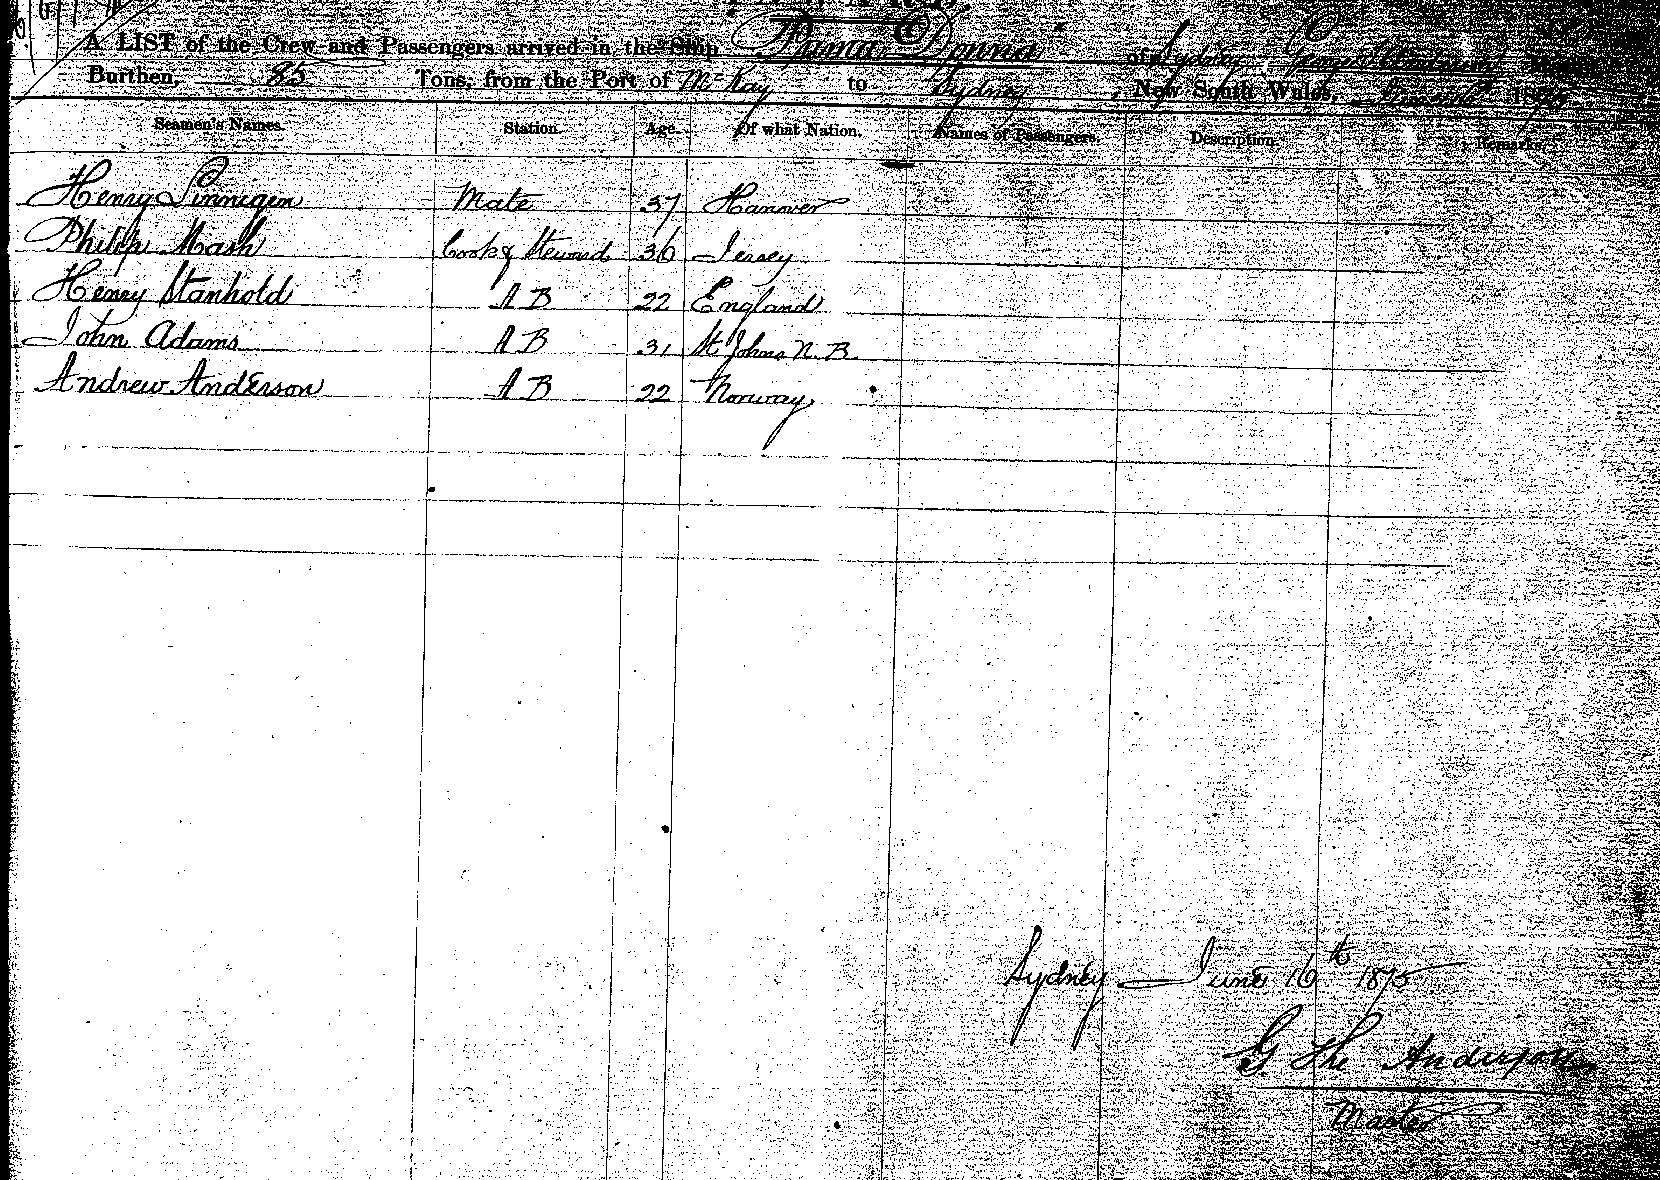 A LIST of the Crew and Passengers arrived in the Ship Prima Donna of Sydney George Master
Burthen, 85 Tons, from the Port of McKay to Sydney, New South Wales, June 16th 1875
Seamen's Names. Station. Age. Of what Nation. Names of Passengers. Description. Remarks.
Henry Linnigen Mate 37 Hanover
Philip Mash Cook & Steward 36 Jersey
Henry Stanhold A B 22 England
John Adams A B 31 St Johns N. B.
Andrew Anderson A B 22 Norway
Sydney June 16th 1875
G The Anderson
Master